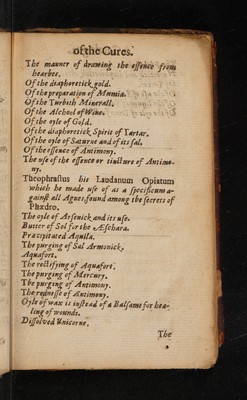 of the Cures.
The manner of drawing the essence from
hearbes.
Of the diaphoretick gold.
Of the preparation of Mumia.
Of the Turbith Minerall.
Of the Alchool of Wine.
Of the oyle of Gold.
Of the diaphoretick Spirit of Tartar.
Of the oyle of Saturne and of its sal.
Of the essence of Antimony.
The use of the essence or tincture of Antimo-
ny.
Theophrastus his Laudanum Opiatum
which he made use of as a specificum a-
gainst all Agues found among the secrets of
Phædro.
The oyle of Arsenick, and its use.
Butter of Sol for the Æschara.
Præcipitated Aquila.
The purging of Sal Armonick.
Aquafort.
The rectifying of Aquafort.
The purging of Mercury.
The purging of Antimony.
The rednesse of Antimony.
Oyle of wax is instead of a Balsame for hea-
ling of wounds.
Dissolved Unicorne.
The